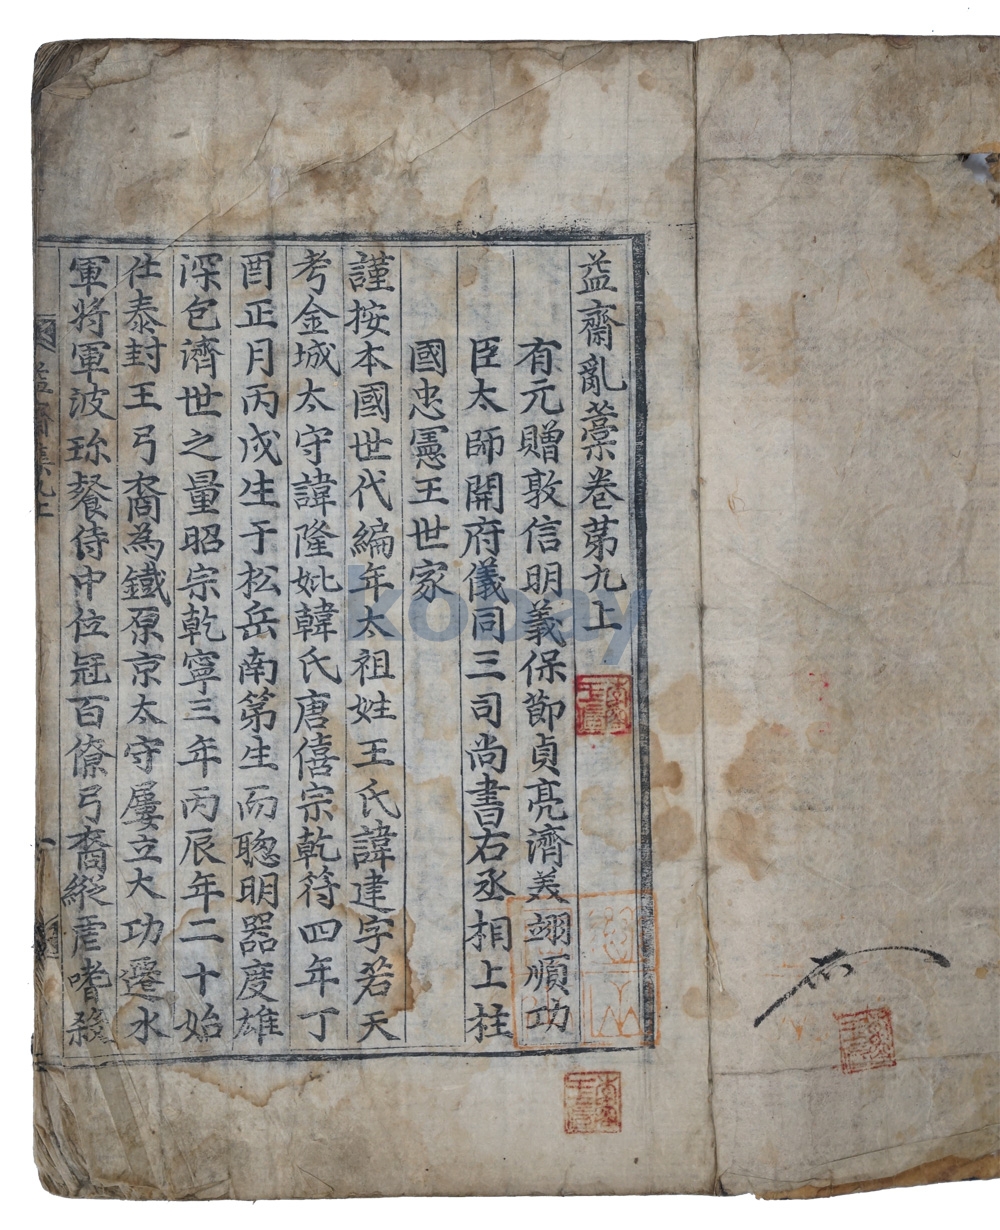 益齋亂藁卷第九上
有元贈敦信明義保節貞亮濟美翊順功
臣太師開府儀同三司尚書右丞相上柱
國忠憲王世家
謹按本國世代編年太祖姓王氏諱建字若天
考金城太守諱隆妣韓氏唐僖宗乾符四年丁
酉正月丙戌生于松岳南第生而聰明器度雄
深包濟世之量昭宗乾寧三年丙辰年二十始
仕泰封王弓裔為鐵原京太守屢立大功遷水
軍將軍波珎餐侍中位冠百僚弓裔縱虐嗜殺
益齋集九上
kobay